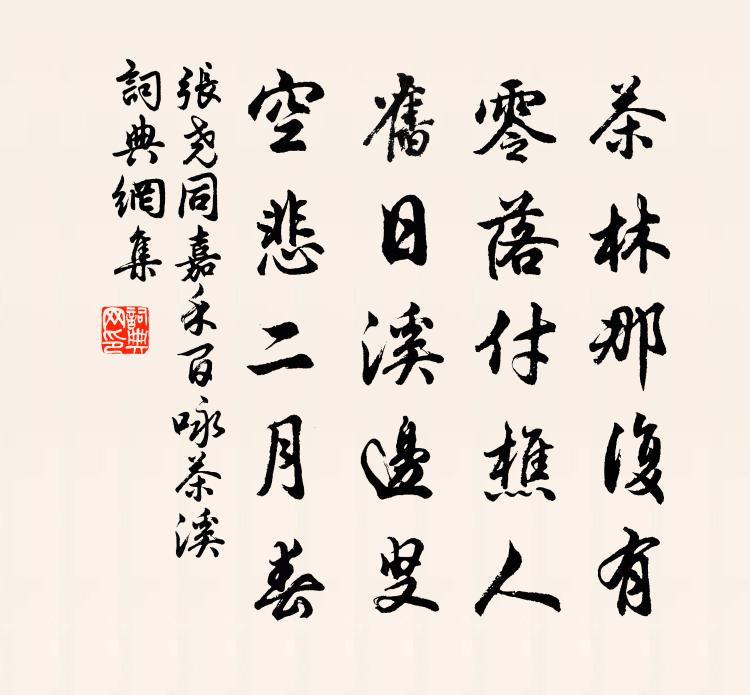 茶林那復有
零落付樵人
舊日溪邊叟
空悲二月春
張堯同嘉禾百咏茶溪
詞典網集
詞典网印